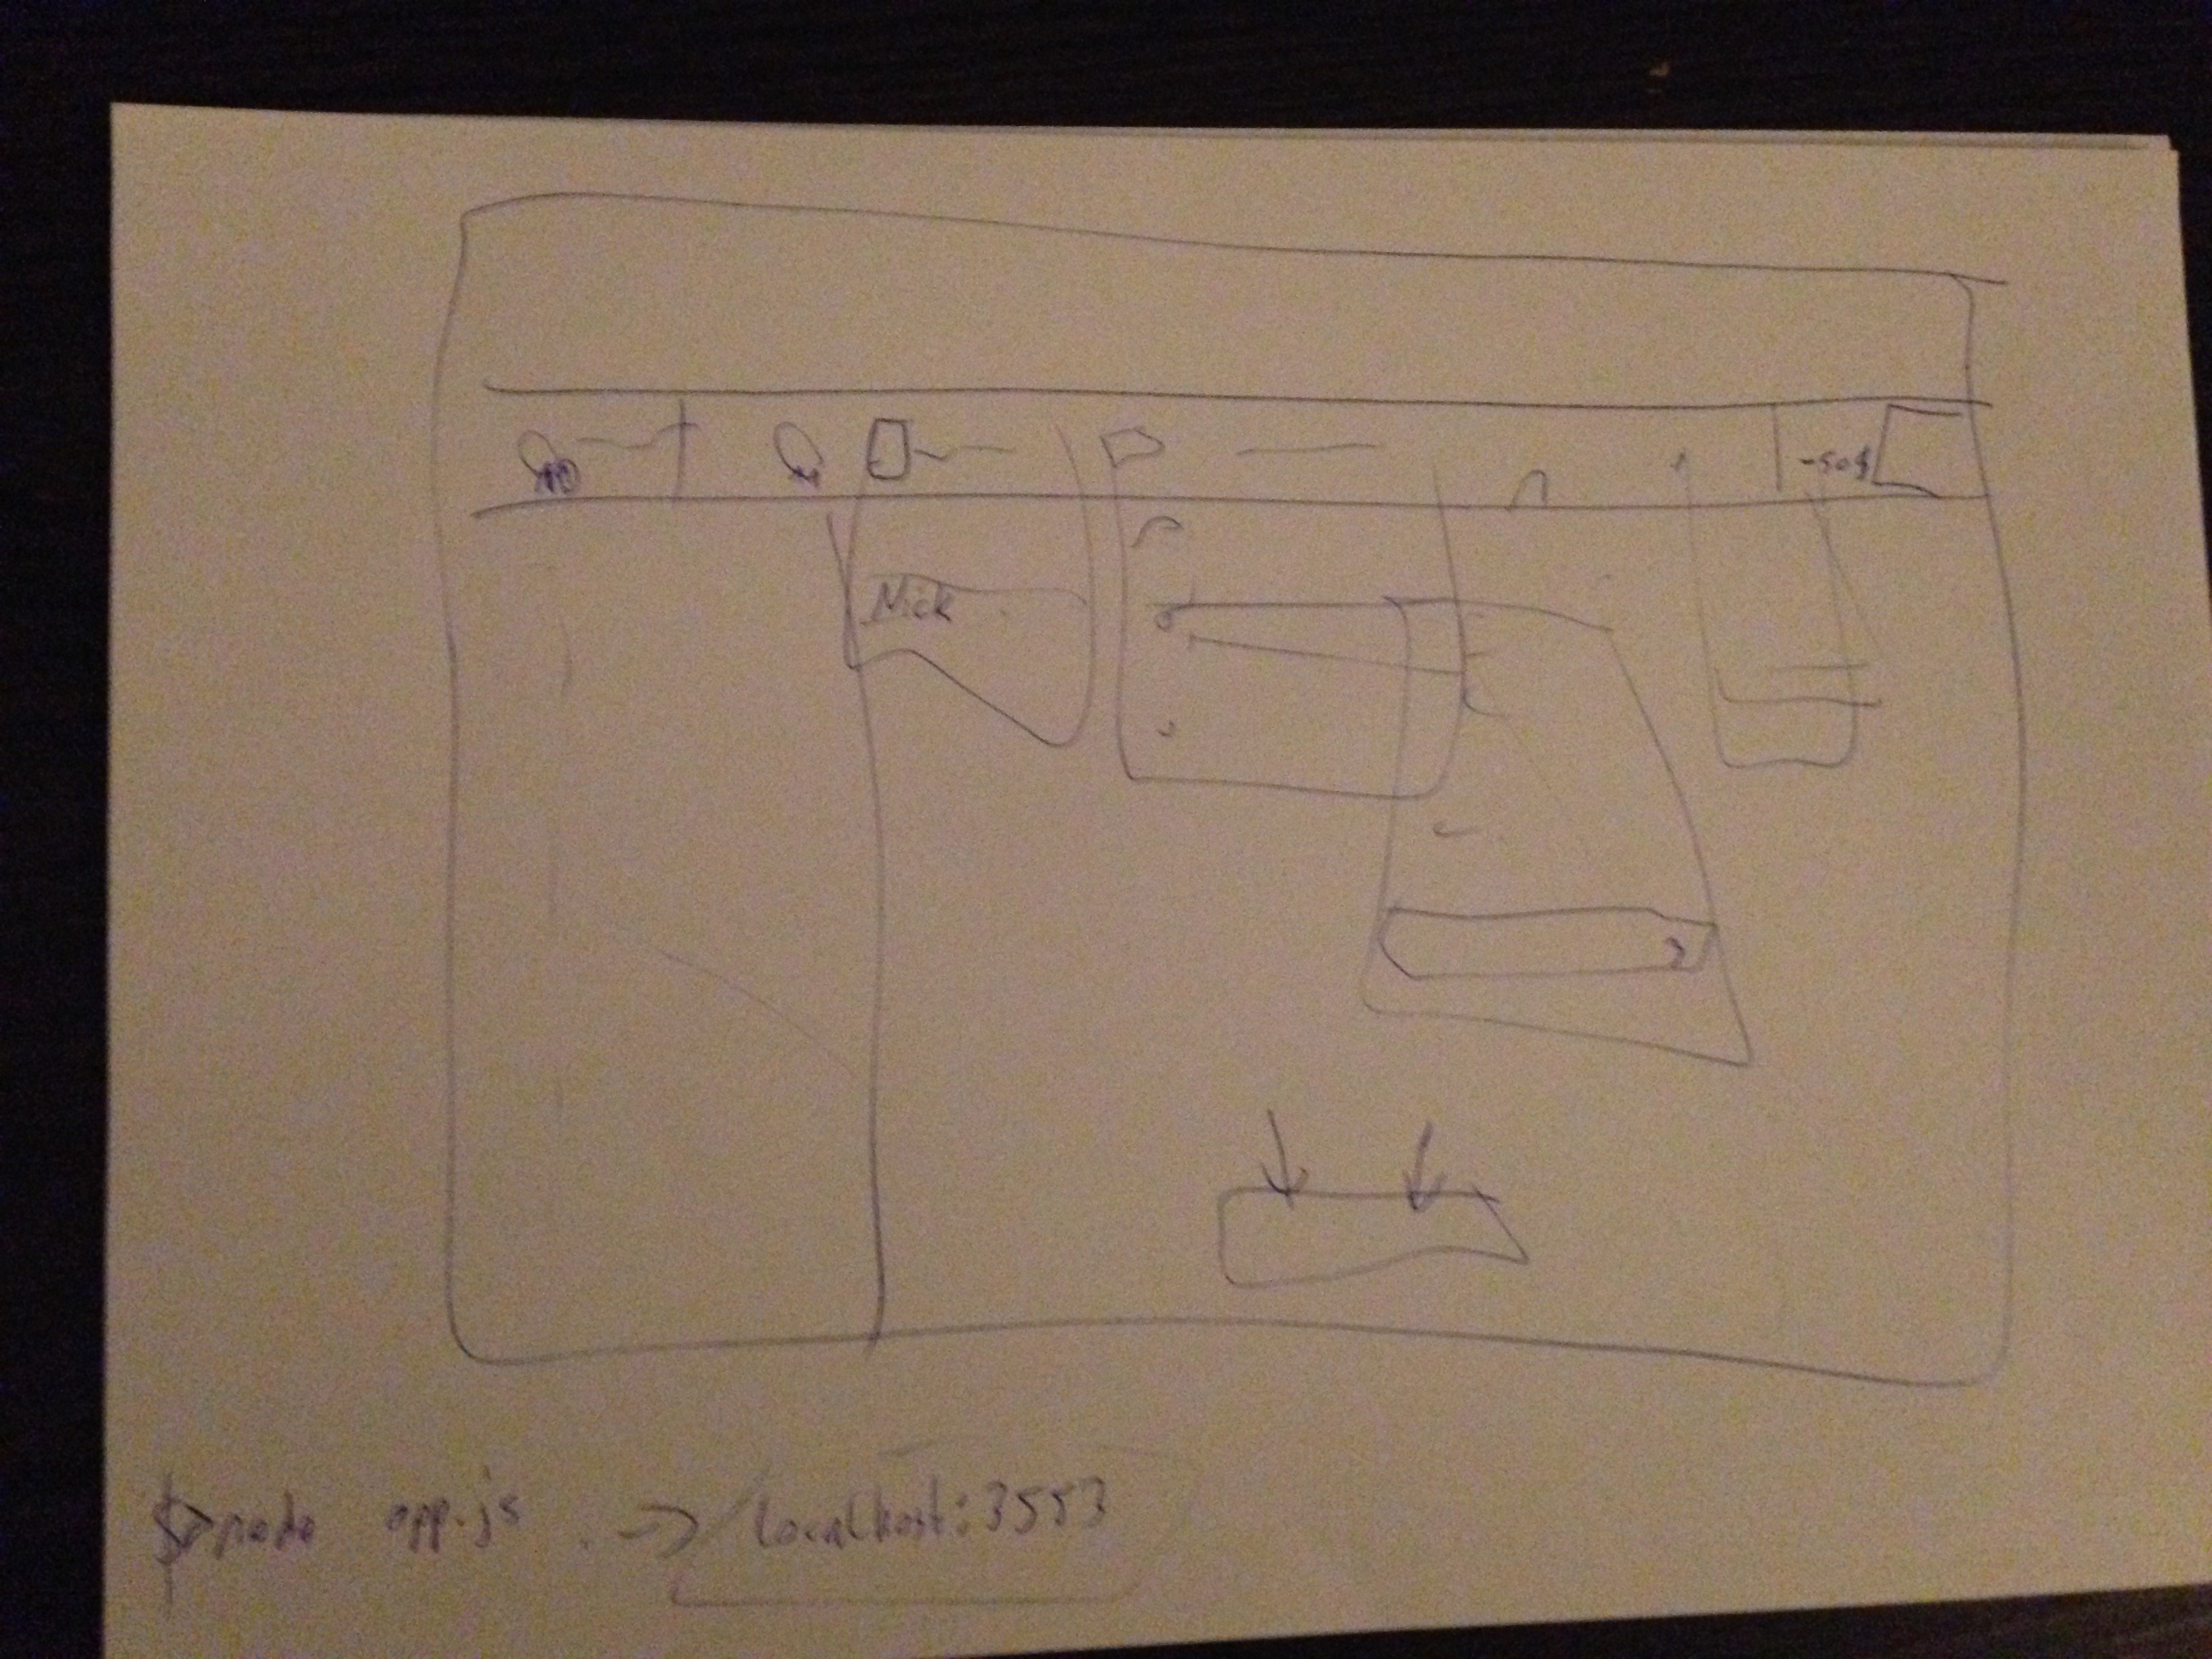 Nick
$> node app.js -> localhost:3553